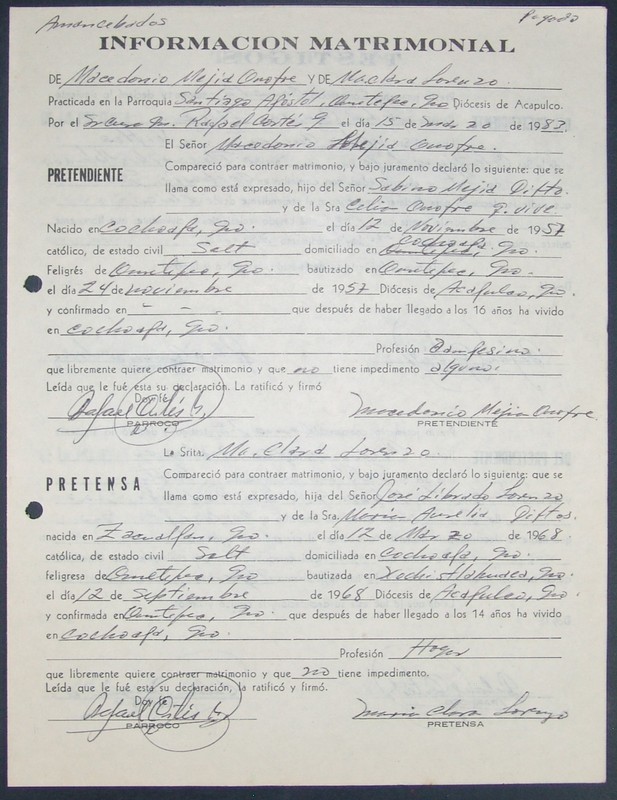 Amancebados
Pagado
INFORMACION MATRIMONIAL
DE Macedonio Mejia Onofre Y DE Ma. Clara Lorenzo.
Practicada en la Parroquia Santiago Apóstol, Ometepec, Gro Diócesis de Acapulco.
Por el Sr. Cura Dn. Rafael Cortés G el día 15 de marzo de 1983.
El Señor Macedonio Mejia Onofre.
PRETENDIENTE
Compareció para contraer matrimonio, y bajo juramento declaró lo siguiente: que se
llama como está expresado, hijo del Señor Sabino Mejia Difto.
y de la Sra Celia Onofre q. vive.
Nacido en Cochoapa, Gro. el día 12 de Noviembre de 1957
católico, de estado civil Solt domiciliado en Cochoapa, Gro.
Feligrés de Ometepec, Gro. bautizado en Ometepec, Gro.
el día 24 de noviembre de 1957 Diócesis de Acapulco, Gro.
y confirmado en - - - que después de haber llegado a los 16 años ha vivido
en Cochoapa, Gro.
Profesión Campesino.
que libremente quiere contraer matrimonio y que no tiene impedimento alguno.
Leída que le fué esta su declaración. La ratificó y firmó
Doy fé
Rafael Cortés G. Macedonio Mejia Onofre.
PARROCO PRETENDIENTE
La Srita. Ma. Clara Lorenzo.
PRETENSA
Compareció para contraer matrimonio, y bajo juramento declaró lo siguiente: que se
llama como está expresado, hija del Señor José Librado Lorenzo
y de la Sra. Maria Aurelia Diftos.
nacida en Zacualpan, Gro. el día 12 de Marzo de 1968.
católica, de estado civil Solt domiciliada en Cochoapa, Gro.
feligresa de Ometepec, Gro bautizada en Xochistlahuaca, Gro.
el día 12 de Septiembre de 1968 Diócesis de Acapulco, Gro.
y confirmada en Ometepec, Gro. que después de haber llegado a los 14 años ha vivido
en Cochoapa, Gro.
Profesión Hogar
que libremente quiere contraer matrimonio y que no tiene impedimento.
Leída que le fué esta su declaración, la ratificó y firmó.
Doy fé
Rafael Cortés G. Maria Clara Lorenzo
PARROCO PRETENSA